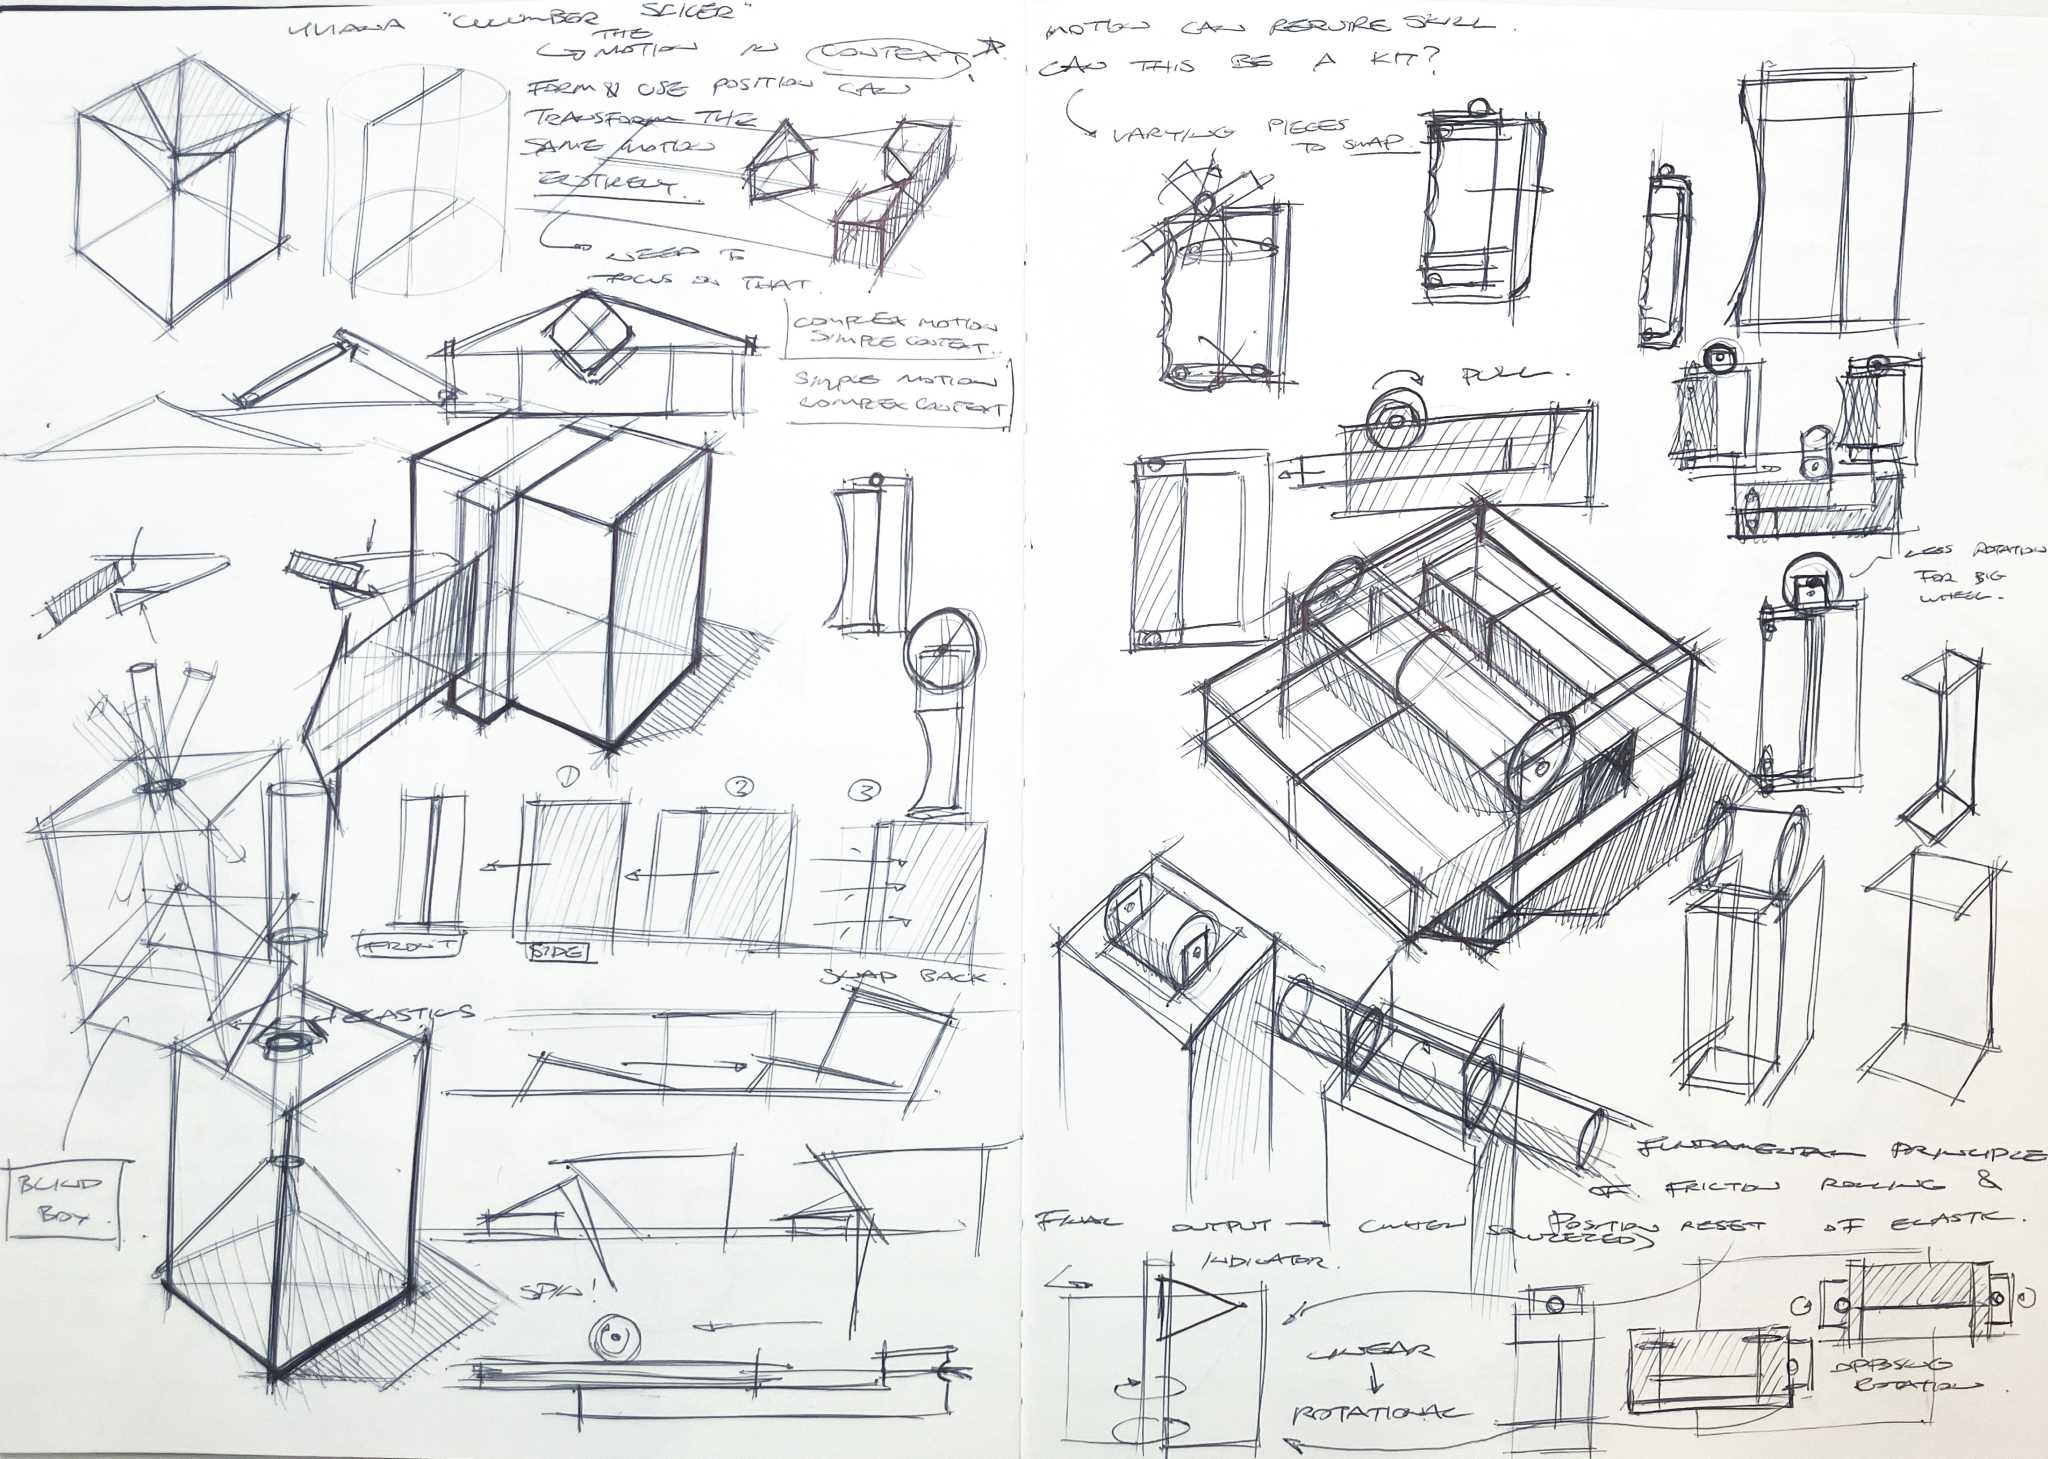 "CUCUMBER SLICER"
THE
MOTION IN CONTEXT
FORM & USE POSITION CAN
TRANSFORM THE
SAME MOTION
ENTIRELY.
NEED TO
FOCUS ON THAT.
COMPLEX MOTION
SIMPLE CONTEXT.
SIMPLE MOTION
COMPLEX CONTEXT
1
2
3
FRONT
SIDE
SNAP BACK.
ELASTICS
BLIND
BOX.
SPIN!
MOTION CAN REQUIRE SKILL.
CAN THIS BE A KIT?
VARYING PIECES
TO SWAP.
PULL.
LESS ROTATION
FOR BIG
WHEEL.
FUNDAMENTAL PRINCIPLE
OF FRICTION ROLLING &
POSITION RESET OF ELASTIC.
FINAL OUTPUT → (WHEN SQUEEZED)
INDICATOR.
LINEAR
↓
ROTATIONAL
OPPOSING
ROTATION.